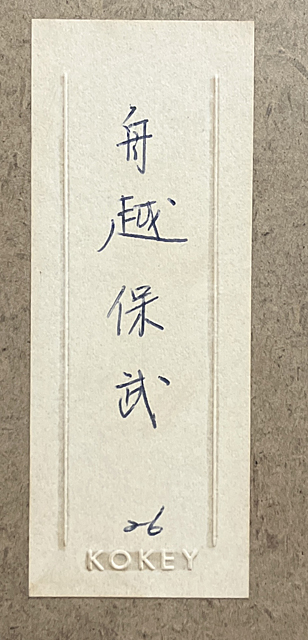 舟越保武
26
KOKEY